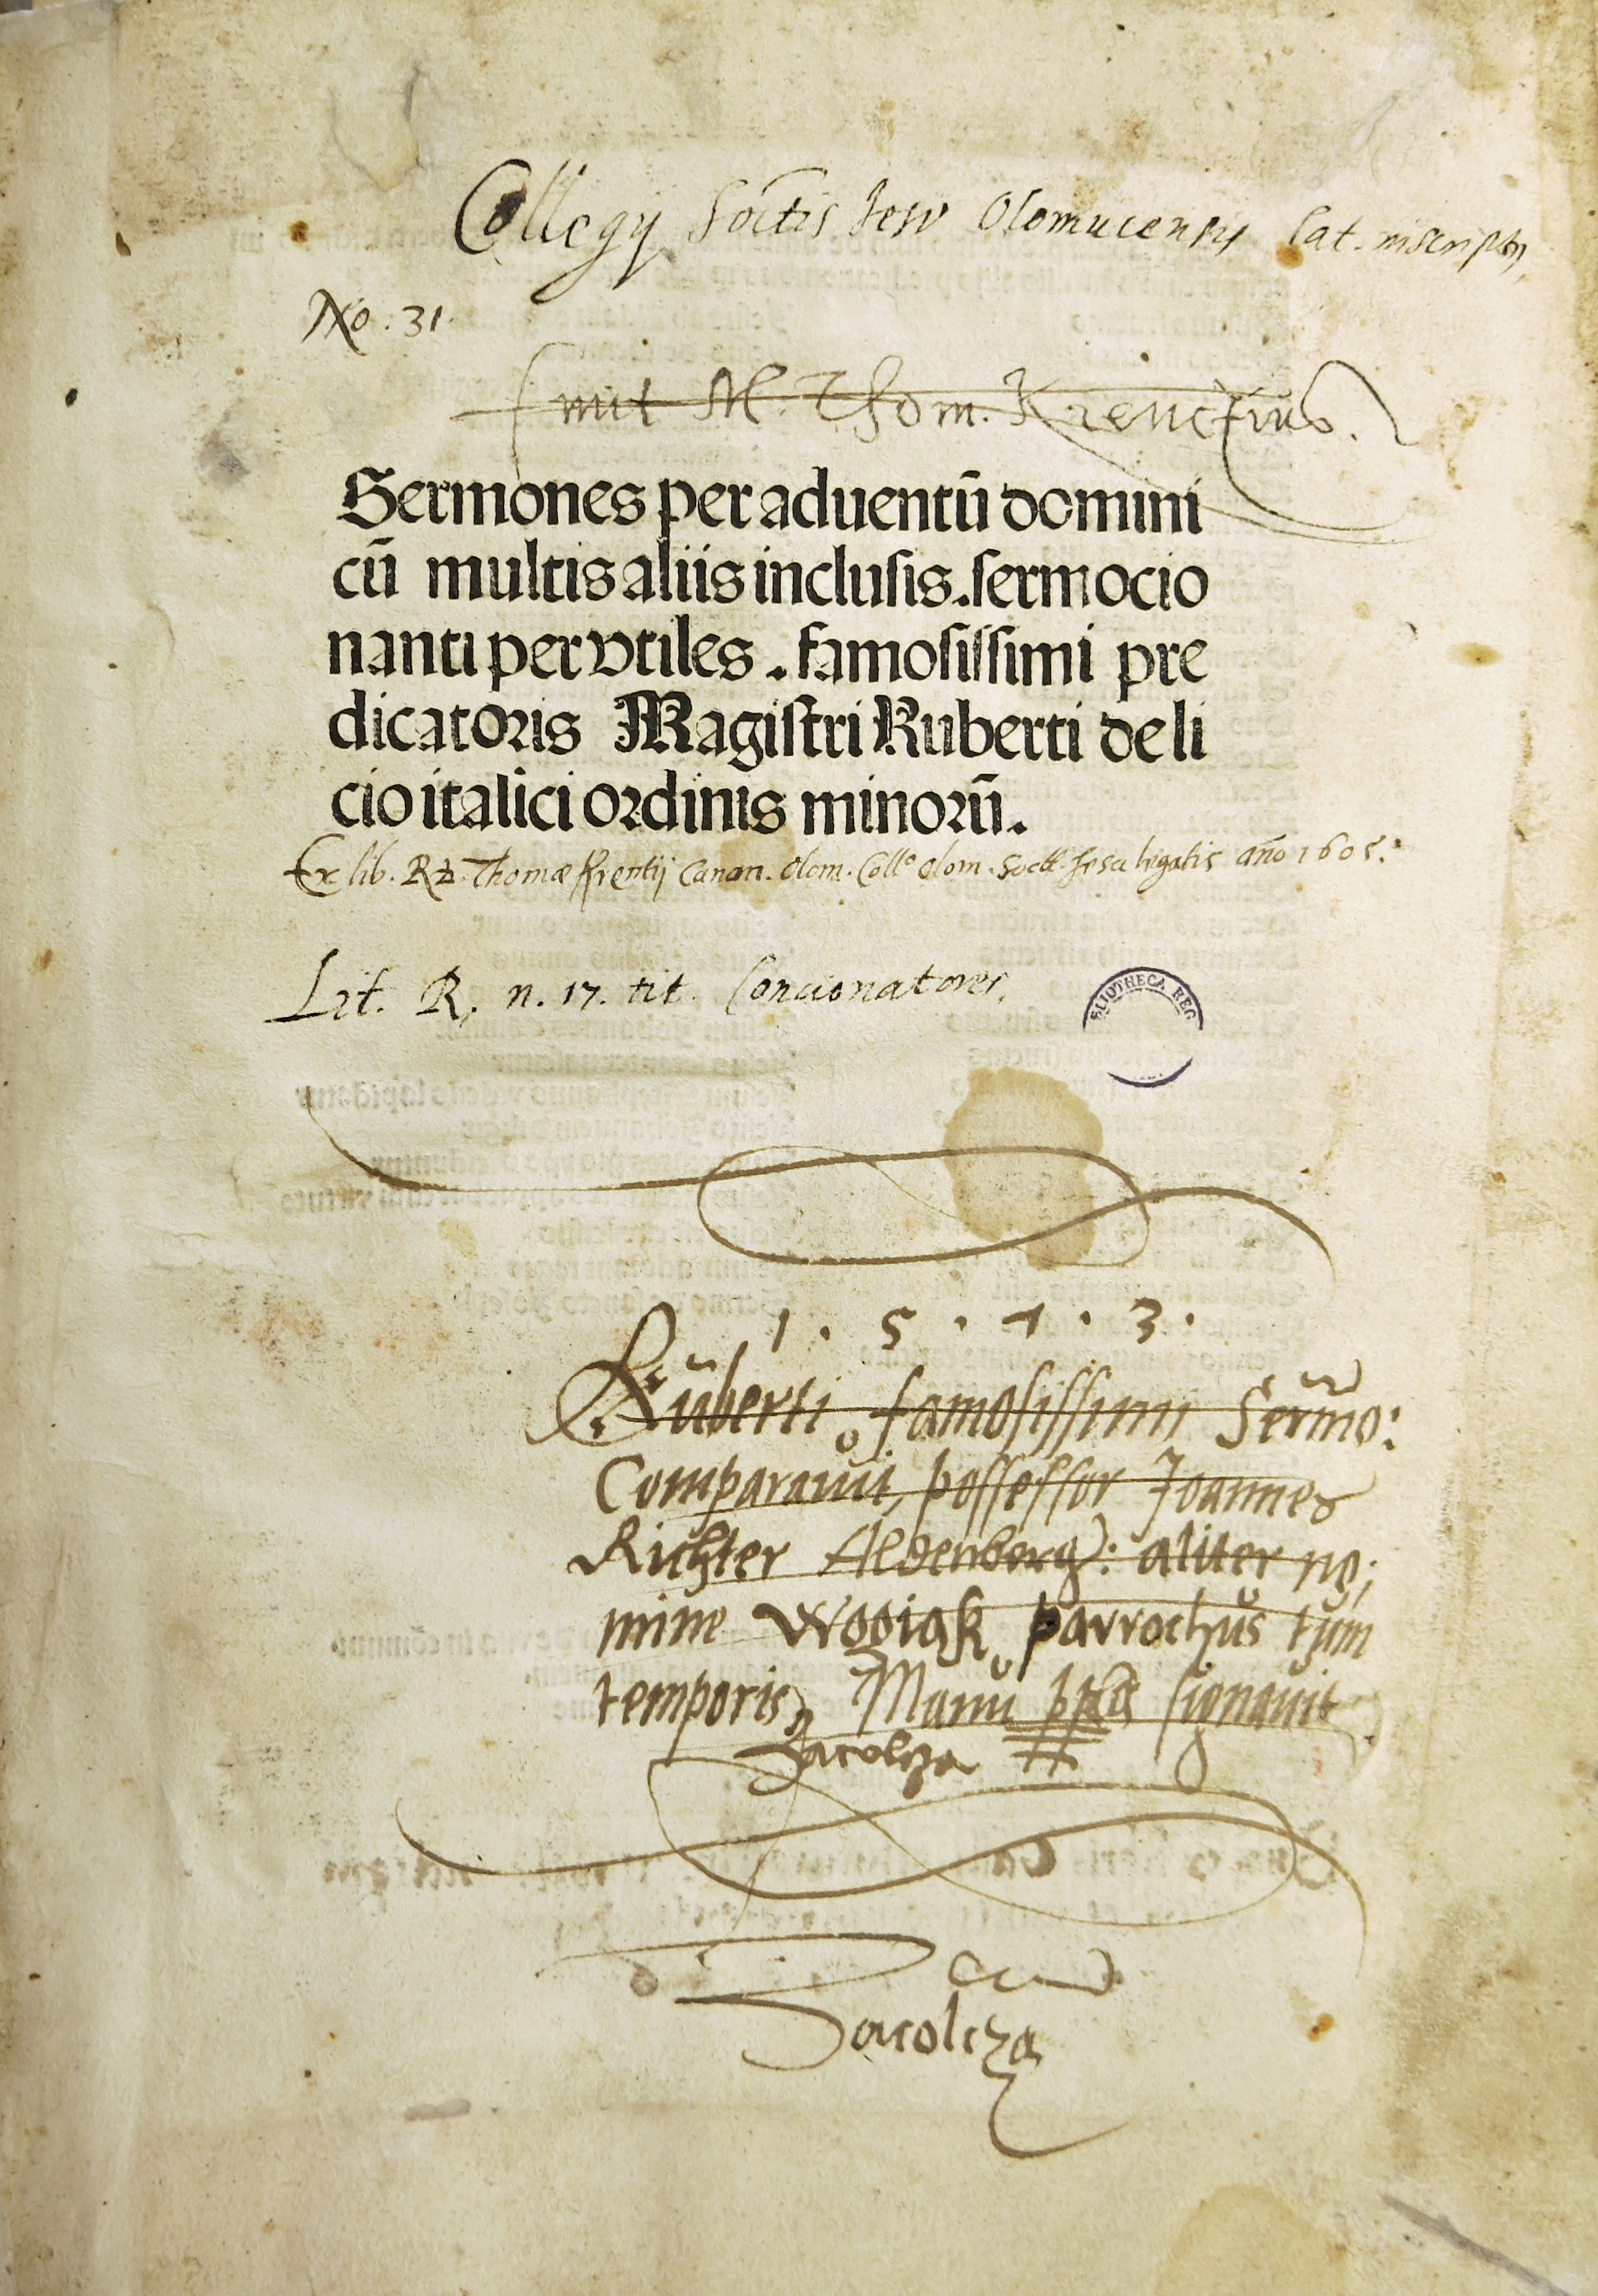 Collegy Soctis Jesu Olomucensis Cat. inscriptg
No. 31.
Emit M. Thom. Krenctius.
Sermones per aduentū domini
cū multis aliis inclusis. sermocio
nanti per vtiles. famosissimi pre
dicatoris Magistri Ruberti de li
cio italici ordinis minorū.
Ex lib. Rd. Thomæ Krentij Canon. Olom. Collo Olom. Soctt. Jesu legatis año 1605.
Lit. R, n. 17. tit. Concionatores.
BLIOTHECA REG
1 . 5 . 7 . 3 .
Ruberti famosissimi Sermo:
Comparauit, possessor Joannes
Richter Aldenberg: aliter no;
mine Wooiak parrochus tum
temporis Manu ppa signauit
Zacolcza
Zacolcza